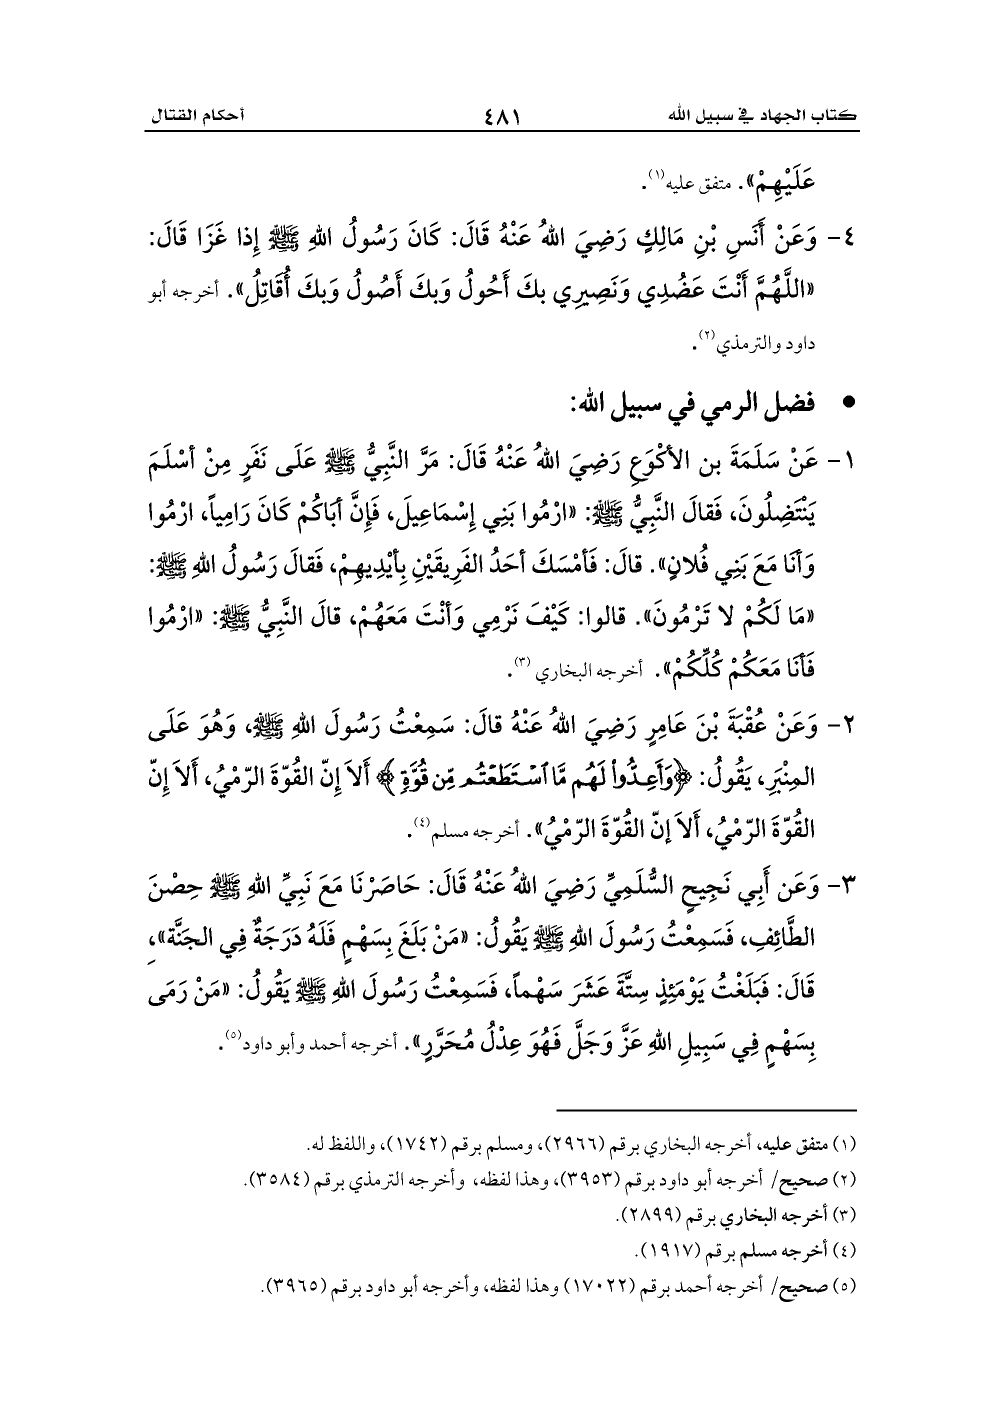 كتاب الجهاد في سبيل الله ٤٨١ أحكام القتال
عَلَيْهِمْ». متفق عليه(١).
٤- وَعَنْ أَنَسِ بْنِ مَالِكٍ رَضِيَ اللهُ عَنْهُ قَالَ: كَانَ رَسُولُ اللهِ ﷺ إِذا غَزَا قَالَ:
«اللَّهُمَّ أَنْتَ عَضُدِي وَنَصِيرِي بِكَ أَحُولُ وَبِكَ أَصُولُ وَبِكَ أُقَاتِلُ». أخرجه أبو
داود والترمذي(٢).
● فضل الرمي في سبيل الله:
١- عَنْ سَلَمَةَ بن الأكْوَعِ رَضِيَ اللهُ عَنْهُ قَالَ: مَرَّ النَّبِيُّ ﷺ عَلَى نَفَرٍ مِنْ أسْلَمَ
يَنْتَضِلُونَ، فَقالَ النَّبِيُّ ﷺ: «ارْمُوا بَنِي إِسْمَاعِيلَ، فَإِنَّ أبَاكُمْ كَانَ رَامِياً، ارْمُوا
وَأنَا مَعَ بَنِي فُلانٍ». قالَ: فَأمْسَكَ أحَدُ الفَرِيقَيْنِ بِأيْدِيهِمْ، فَقالَ رَسُولُ اللهِ ﷺ:
«مَا لَكُمْ لا تَرْمُونَ». قالوا: كَيْفَ نَرْمِي وَأنْتَ مَعَهُمْ، قالَ النَّبِيُّ ﷺ: «ارْمُوا
فَأنَا مَعَكُمْ كُلِّكُمْ». أخرجه البخاري (٣).
٢- وَعَنْ عُقْبَةَ بْنَ عَامِرٍ رَضِيَ اللهُ عَنْهُ قالَ: سَمِعْتُ رَسُولَ اللهِ ﷺ، وَهُوَ عَلَى
المِنْبَرِ، يَقُولُ: ﴿وَأَعِدُّواْ لَهُم مَّا ٱسْتَطَعْتُم مِّن قُوَّةٍ﴾ أَلاَ إِنّ القُوّةَ الرّمْيُ، أَلاَ إِنّ
القُوّةَ الرّمْيُ، أَلاَ إِنّ القُوّةَ الرّمْيُ». أخرجه مسلم(٤).
٣- وَعَن أَبِي نَجِيحٍ السُّلَمِيِّ رَضِيَ اللهُ عَنْهُ قَالَ: حَاصَرْنَا مَعَ نَبِيِّ اللهِ ﷺ حِصْنَ
الطَّائِفِ، فَسَمِعْتُ رَسُولَ اللهِ ﷺ يَقُولُ: «مَنْ بَلَغَ بِسَهْمٍ فَلَهُ دَرَجَةٌ فِي الجَنَّة»،
قَالَ: فَبَلَغْتُ يَوْمَئِذٍ سِتَّةَ عَشَرَ سَهْماً، فَسَمِعْتُ رَسُولَ اللهِ ﷺ يَقُولُ: «مَنْ رَمَى
بِسَهْمٍ فِي سَبِيلِ اللهِ عَزَّ وَجَلَّ فَهُوَ عِدْلُ مُحَرَّرٍ». أخرجه أحمد وأبو داود(٥).
(١) متفق عليه، أخرجه البخاري برقم (٢٩٦٦)، ومسلم برقم (١٧٤٢)، واللفظ له.
(٢) صحيح/ أخرجه أبو داود برقم (٣٩٥٣)، وهذا لفظه، وأخرجه الترمذي برقم (٣٥٨٤).
(٣) أخرجه البخاري برقم (٢٨٩٩).
(٤) أخرجه مسلم برقم (١٩١٧).
(٥) صحيح/ أخرجه أحمد برقم (١٧٠٢٢) وهذا لفظه، وأخرجه أبو داود برقم (٣٩٦٥).